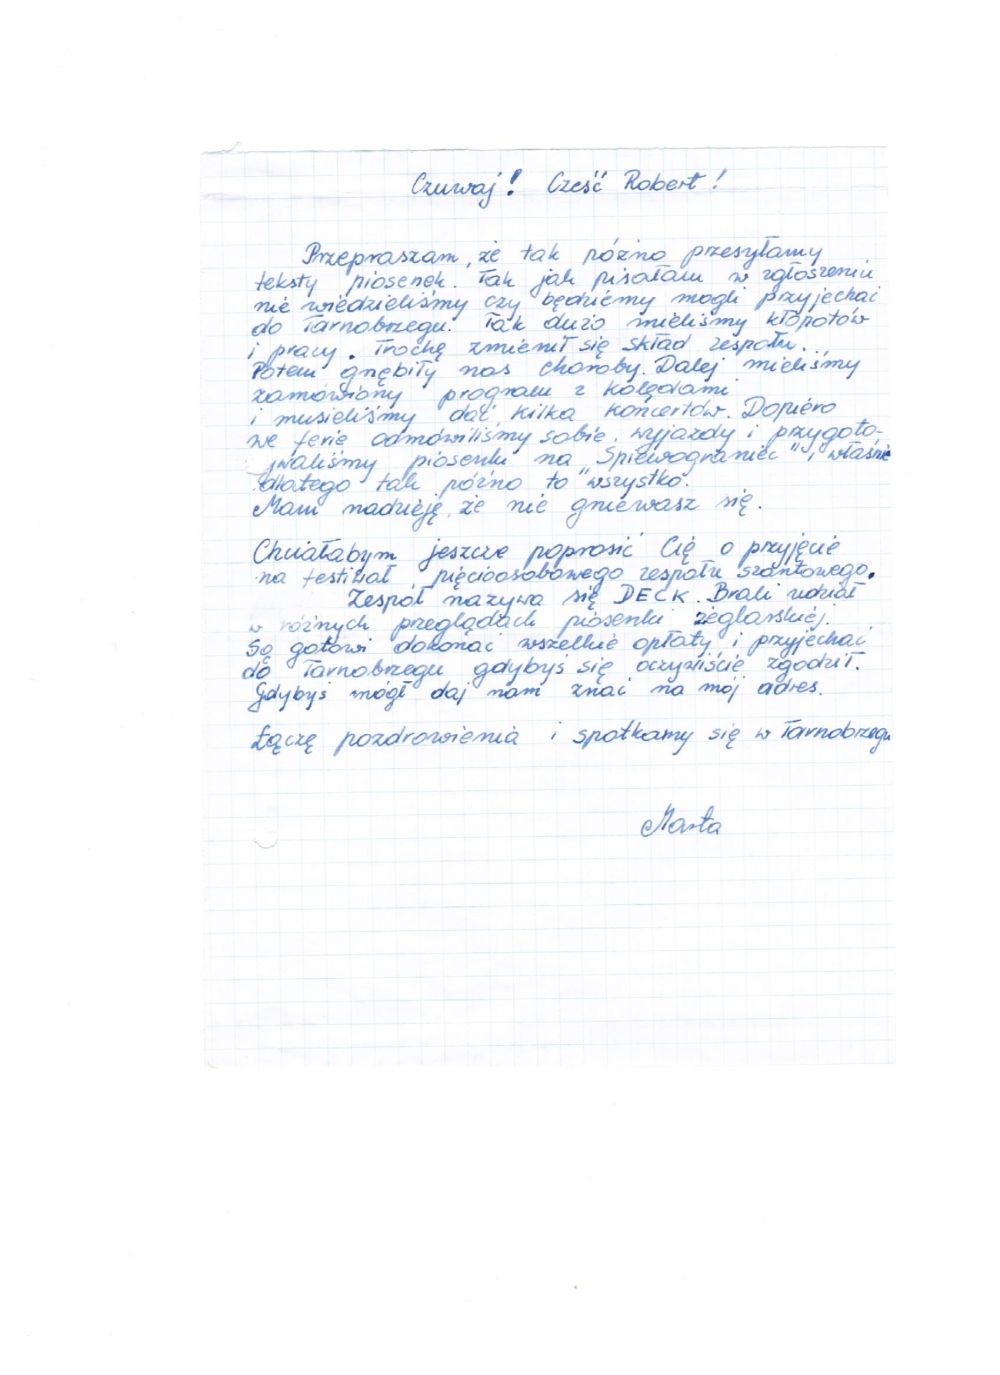 Czuwaj! Cześć Robert!
Przepraszam, że tak późno przesyłamy
teksty piosenek. Tak jak pisałam w zgłoszeniu
nie wiedzieliśmy czy będziemy mogli przyjechać
do Tarnobrzegu. Tak dużo mieliśmy kłopotów
i pracy. Trochę zmienił się skład zespołu...
Potem gnębiły nas choroby. Dalej mieliśmy
zamówiony program z kolędami
i musieliśmy dać kilka koncertów. Dopiero
we ferie odmówiliśmy sobie wyjazdy i przygoto-
waliśmy piosenki na "Śpiewograniec", właśnie
dlatego tak późno to wszystko.
Mam nadzieję, że nie gniewasz się.
Chciałabym jeszcze poprosić Cię o przyjęcie
na festiwal pięcioosobowego zespołu szantowego.
Zespół nazywa się DECK. Brali udział
w różnych przeglądach piosenki żeglarskiej.
Są gotowi dokonać wszelkie opłaty i przyjechać
do Tarnobrzegu gdybyś się oczywiście zgodził.
Gdybyś mógł daj nam znać na mój adres.
Łączę pozdrowienia i spotkamy się w Tarnobrzegu
Marta